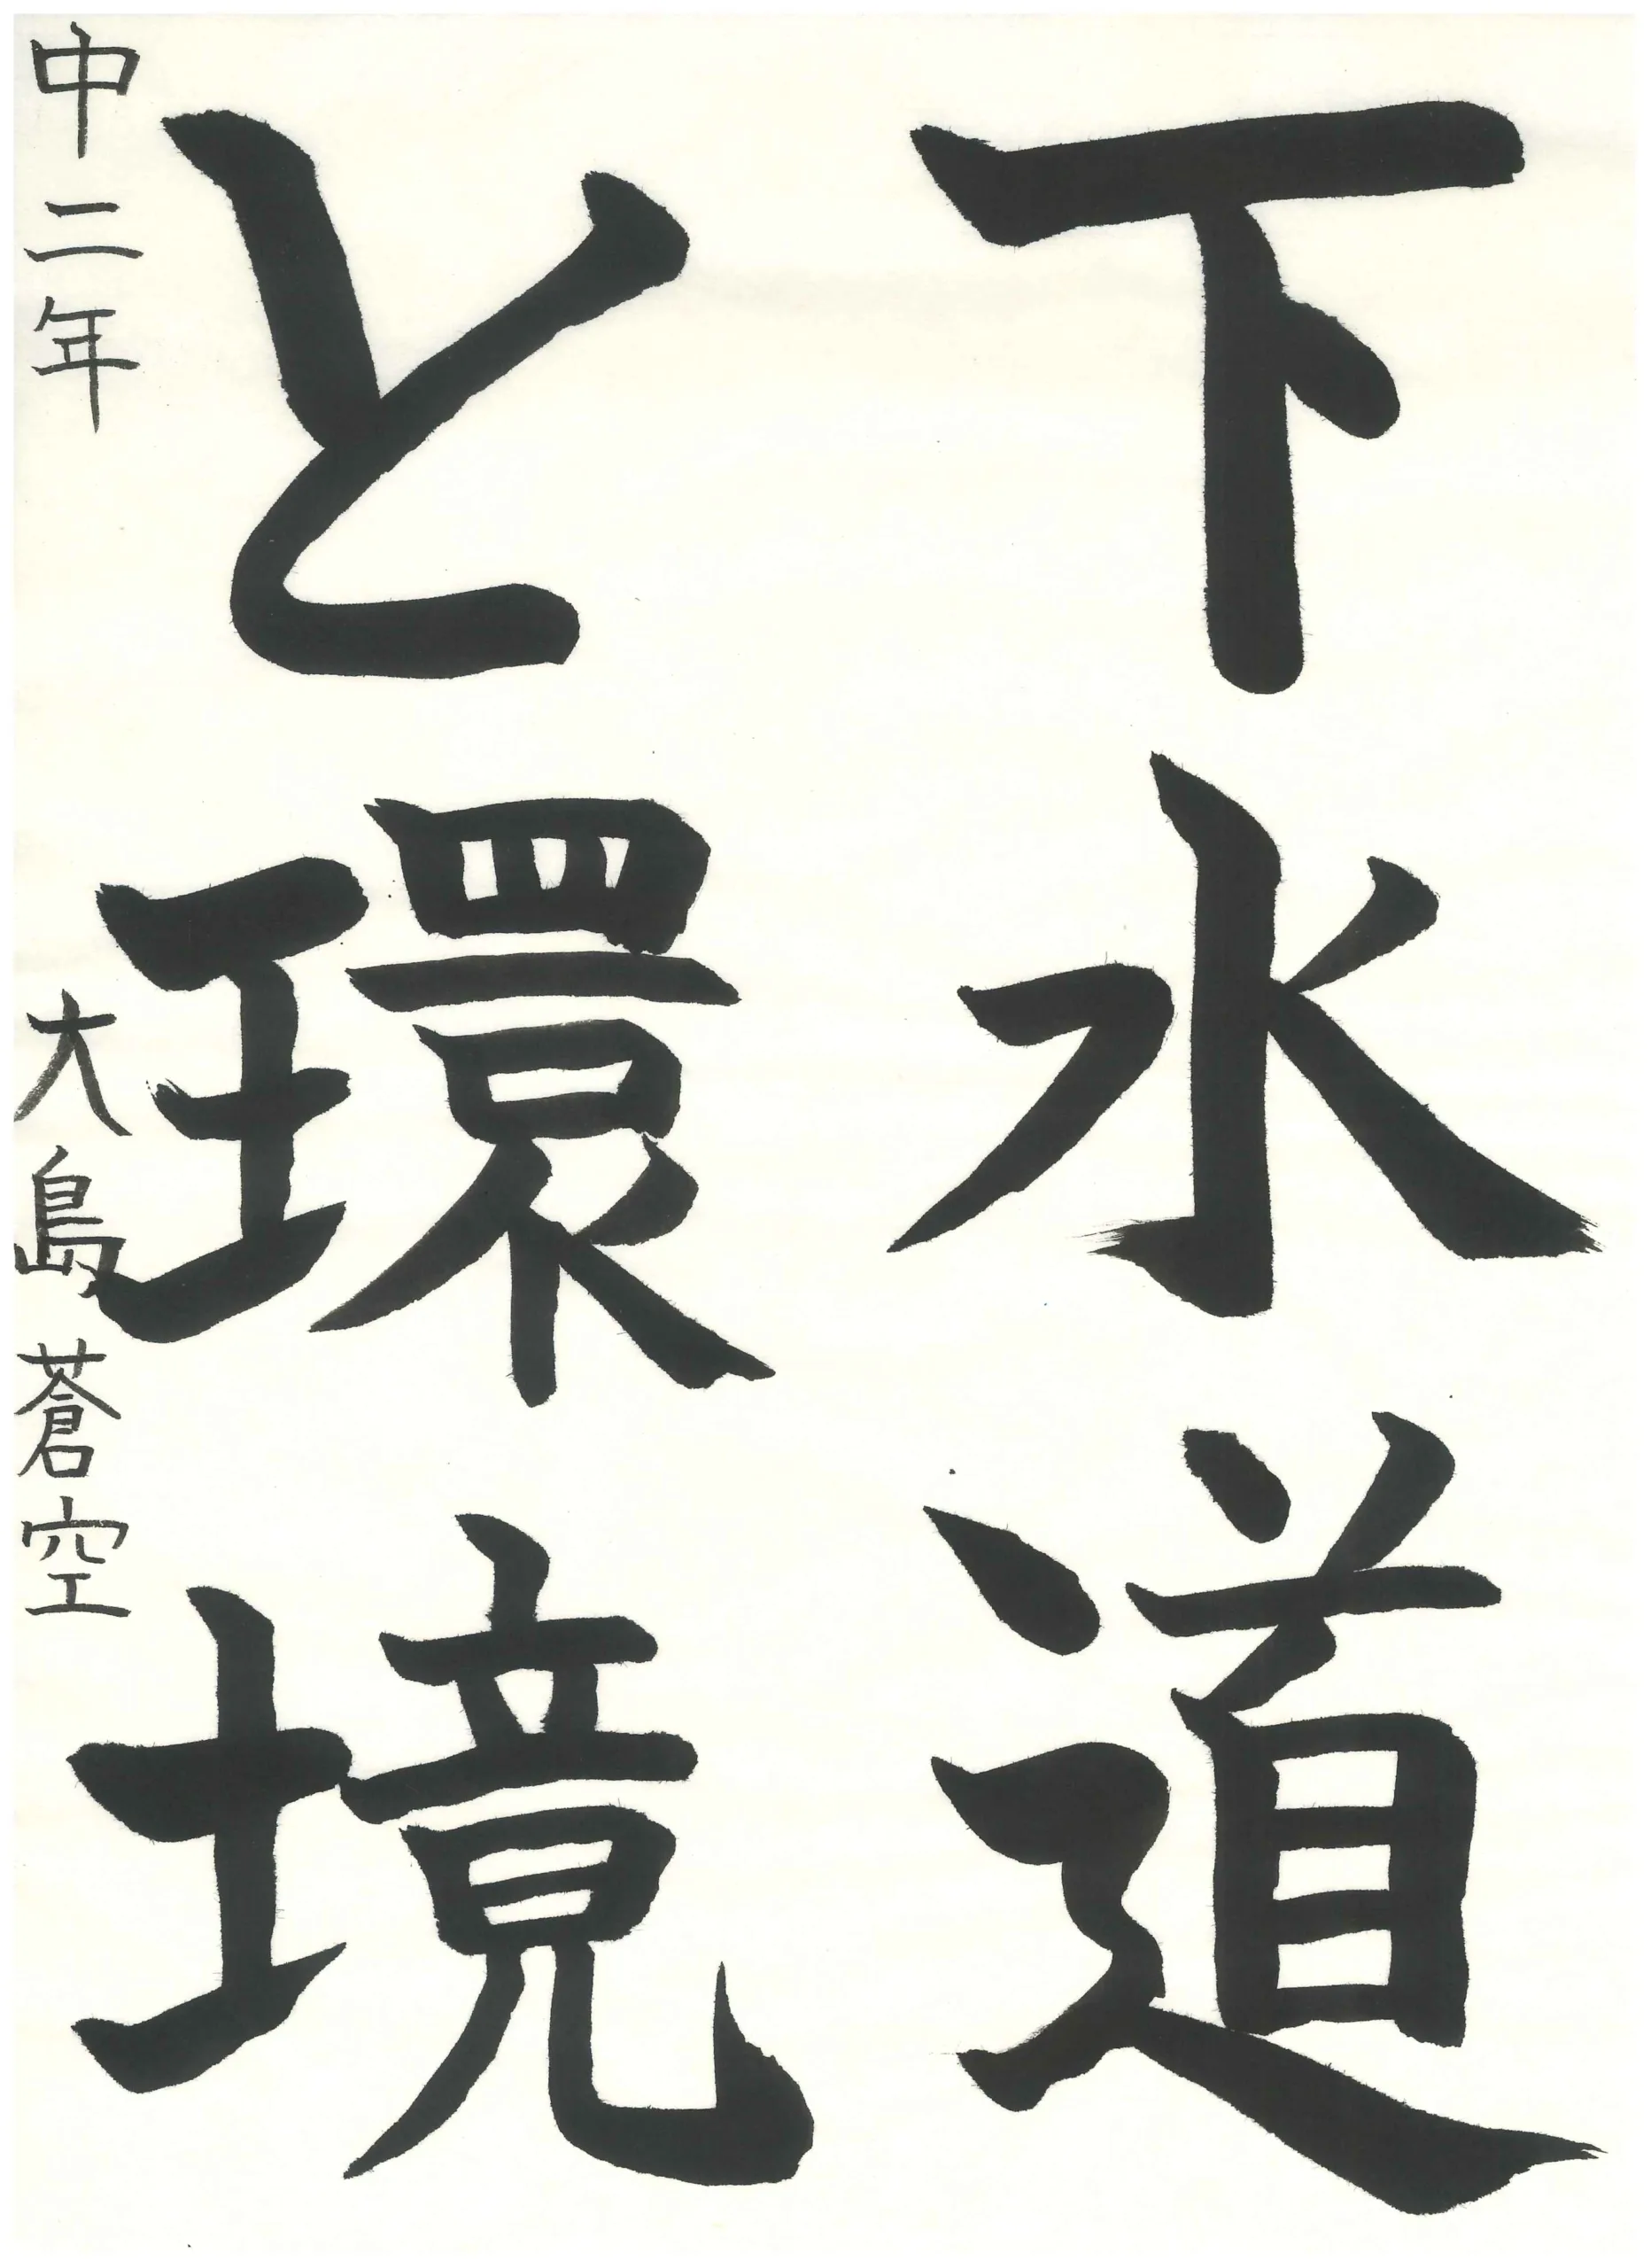 下水道
と環境
中二年 大島蒼空